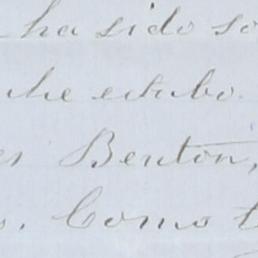 ha sido so
he estubo.
Benton,
Como t